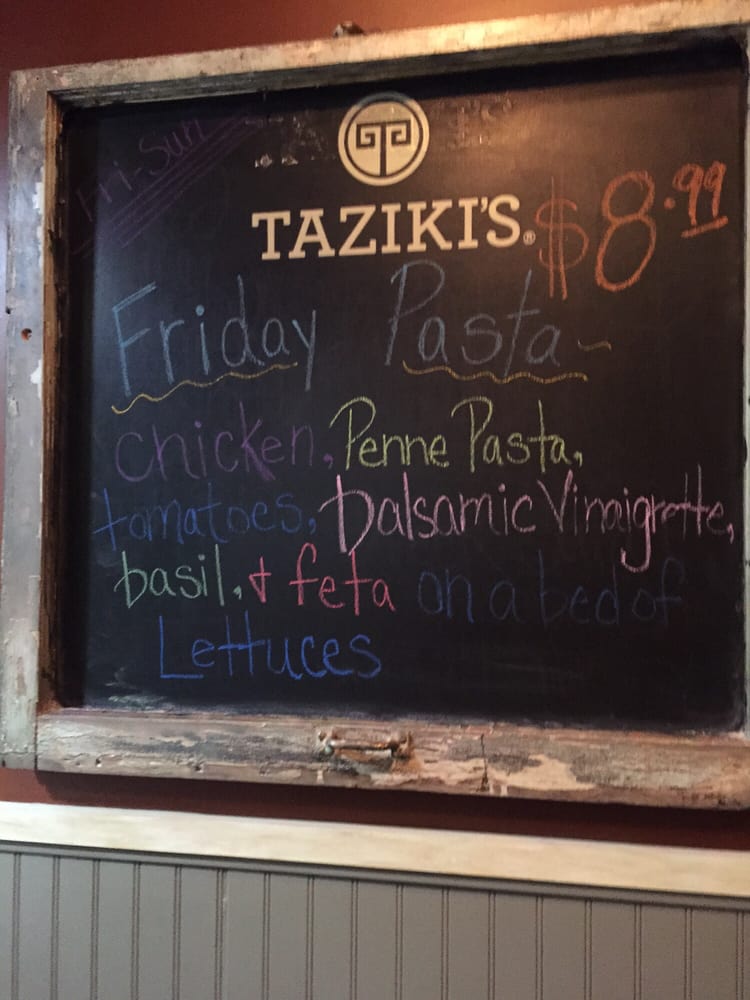 Fri-Sun
TAZIKI'S® $8.99
Friday Pasta~
chicken, Penne Pasta,
tomatoes, balsamic Vinaigrette,
basil, & feta on a bed of
Lettuces